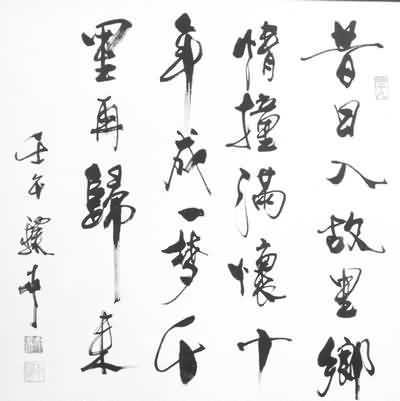 昔日入故里鄉
情撞滿懷十
年成一梦千
里再歸來
壬午